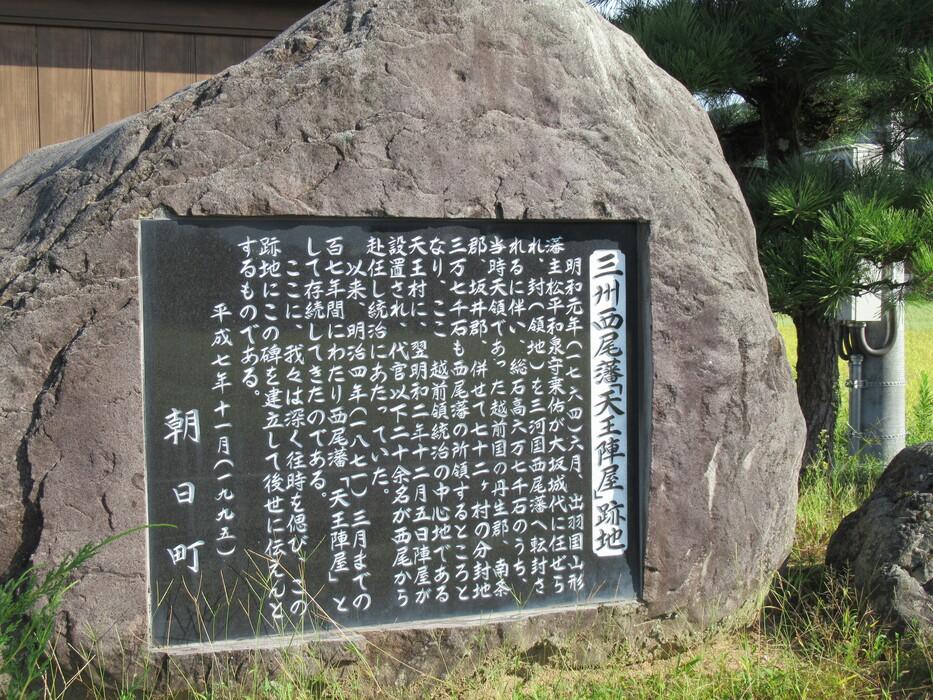 三州西尾藩「天王陣屋」跡地
明和元年(一七六四)六月、出羽国山形
藩主松平和泉守乗佑が大坂城代に任せら
れ、封(領地)を三河国西尾藩へ転封さ
れるに伴い、総石高六万七千石のうち、
当時天領であった越前国の丹生郡、南条
郡、坂井郡、併せて七十二ヶ村の分封地
三万七千石も西尾藩の所領するところと
なり、ここ 越前領統治の中心地である
天王村に、翌明和二年十二月五日陣屋が
設置され、代官以下二十余名が西尾から
赴任し統治にあたっていた。
以来、明治四年(一八七一)三月までの
百七年間にわたり西尾藩「天王陣屋」と
して存続してきたのである。
ここに、我々は深く往時を偲び、この
跡地にこの碑を建立して後世に伝えんと
するものである。
平成七年十一月(一九九五)
朝日町